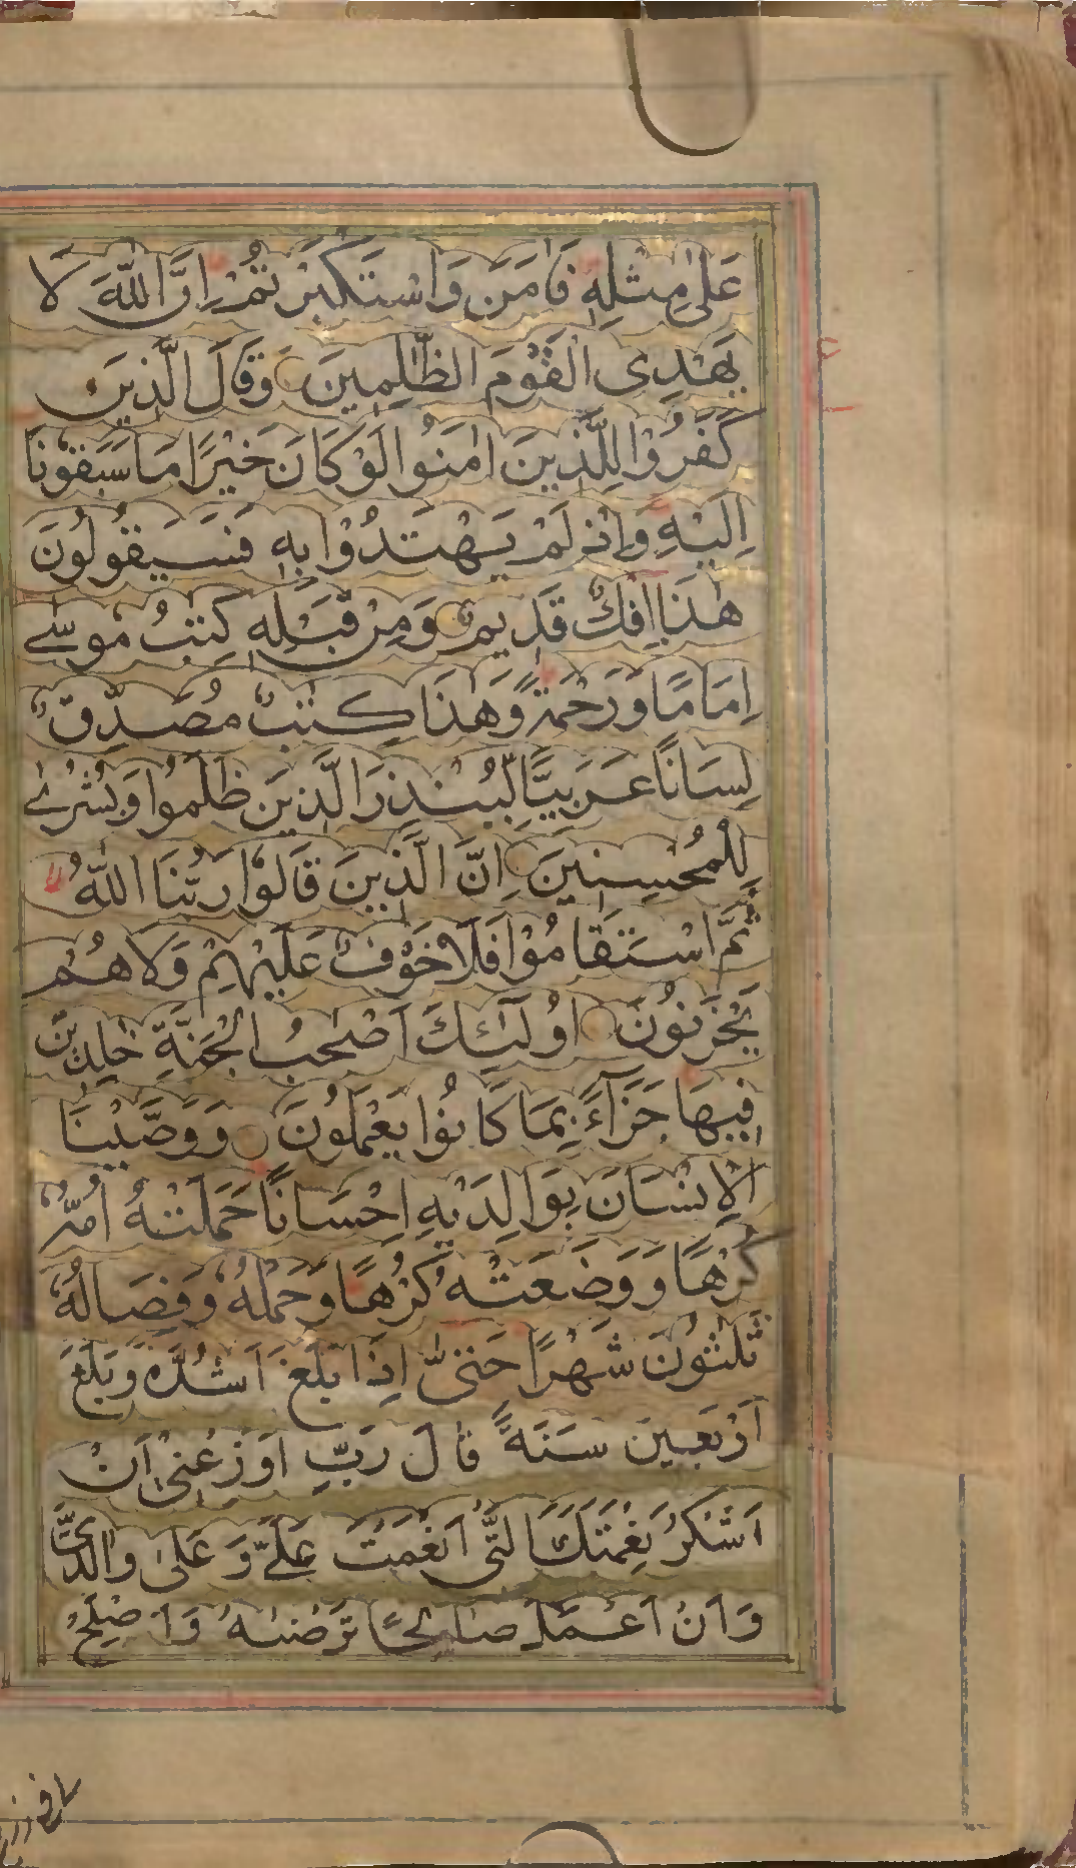 عَلٰى مِثْلِهٖ فَاٰمَنَ وَاسْتَكْبَرْتُمْ اِنَّ اللّٰهَ لَا
يَهْدِى الْقَوْمَ الظّٰلِمِينَ وَقَالَ الَّذِينَ
كَفَرُوْا لِلَّذِينَ اٰمَنُوا لَوْ كَانَ خَيْرًا مَا سَبَقُوْنَا
اِلَيْهِ وَاِذْ لَمْ يَهْتَدُوْا بِهٖ فَسَيَقُولُونَ
هٰذَا اِفْكٌ قَدِيمٌ وَمِنْ قَبْلِهٖ كِتٰبُ مُوسٰى
اِمَامًا وَرَحْمَةً وَهٰذَا كِتٰبٌ مُصَدِّقٌ
لِسَانًا عَرَبِيًّا لِيُنْذِرَ الَّذِينَ ظَلَمُوا وَبُشْرٰى
لِلْمُحْسِنِينَ اِنَّ الَّذِينَ قَالُوْا رَبُّنَا اللّٰهُ
ثُمَّ اسْتَقَامُوْا فَلَا خَوْفٌ عَلَيْهِمْ وَلَا هُمْ
يَحْزَنُونَ اُولٰٓئِكَ اَصْحٰبُ الْجَنَّةِ خٰلِدِينَ
فِيهَا جَزَآءً بِمَا كَانُوْا يَعْمَلُونَ وَوَصَّيْنَا
الْاِنْسَانَ بِوَالِدَيْهِ اِحْسَانًا حَمَلَتْهُ اُمُّهُ
كُرْهًا وَوَضَعَتْهُ كُرْهًا وَحَمْلُهُ وَفِصَالُهُ
ثَلٰثُونَ شَهْرًا حَتّٰى اِذَا بَلَغَ اَشُدَّهُ وَبَلَغَ
اَرْبَعِينَ سَنَةً قَالَ رَبِّ اَوْزِعْنِىْ اَنْ
اَشْكُرَ نِعْمَتَكَ الَّتِىْ اَنْعَمْتَ عَلَىَّ وَعَلٰى وَالِدَىَّ
وَاَنْ اَعْمَلَ صَالِحًا تَرْضٰىهُ وَاَصْلِحْ